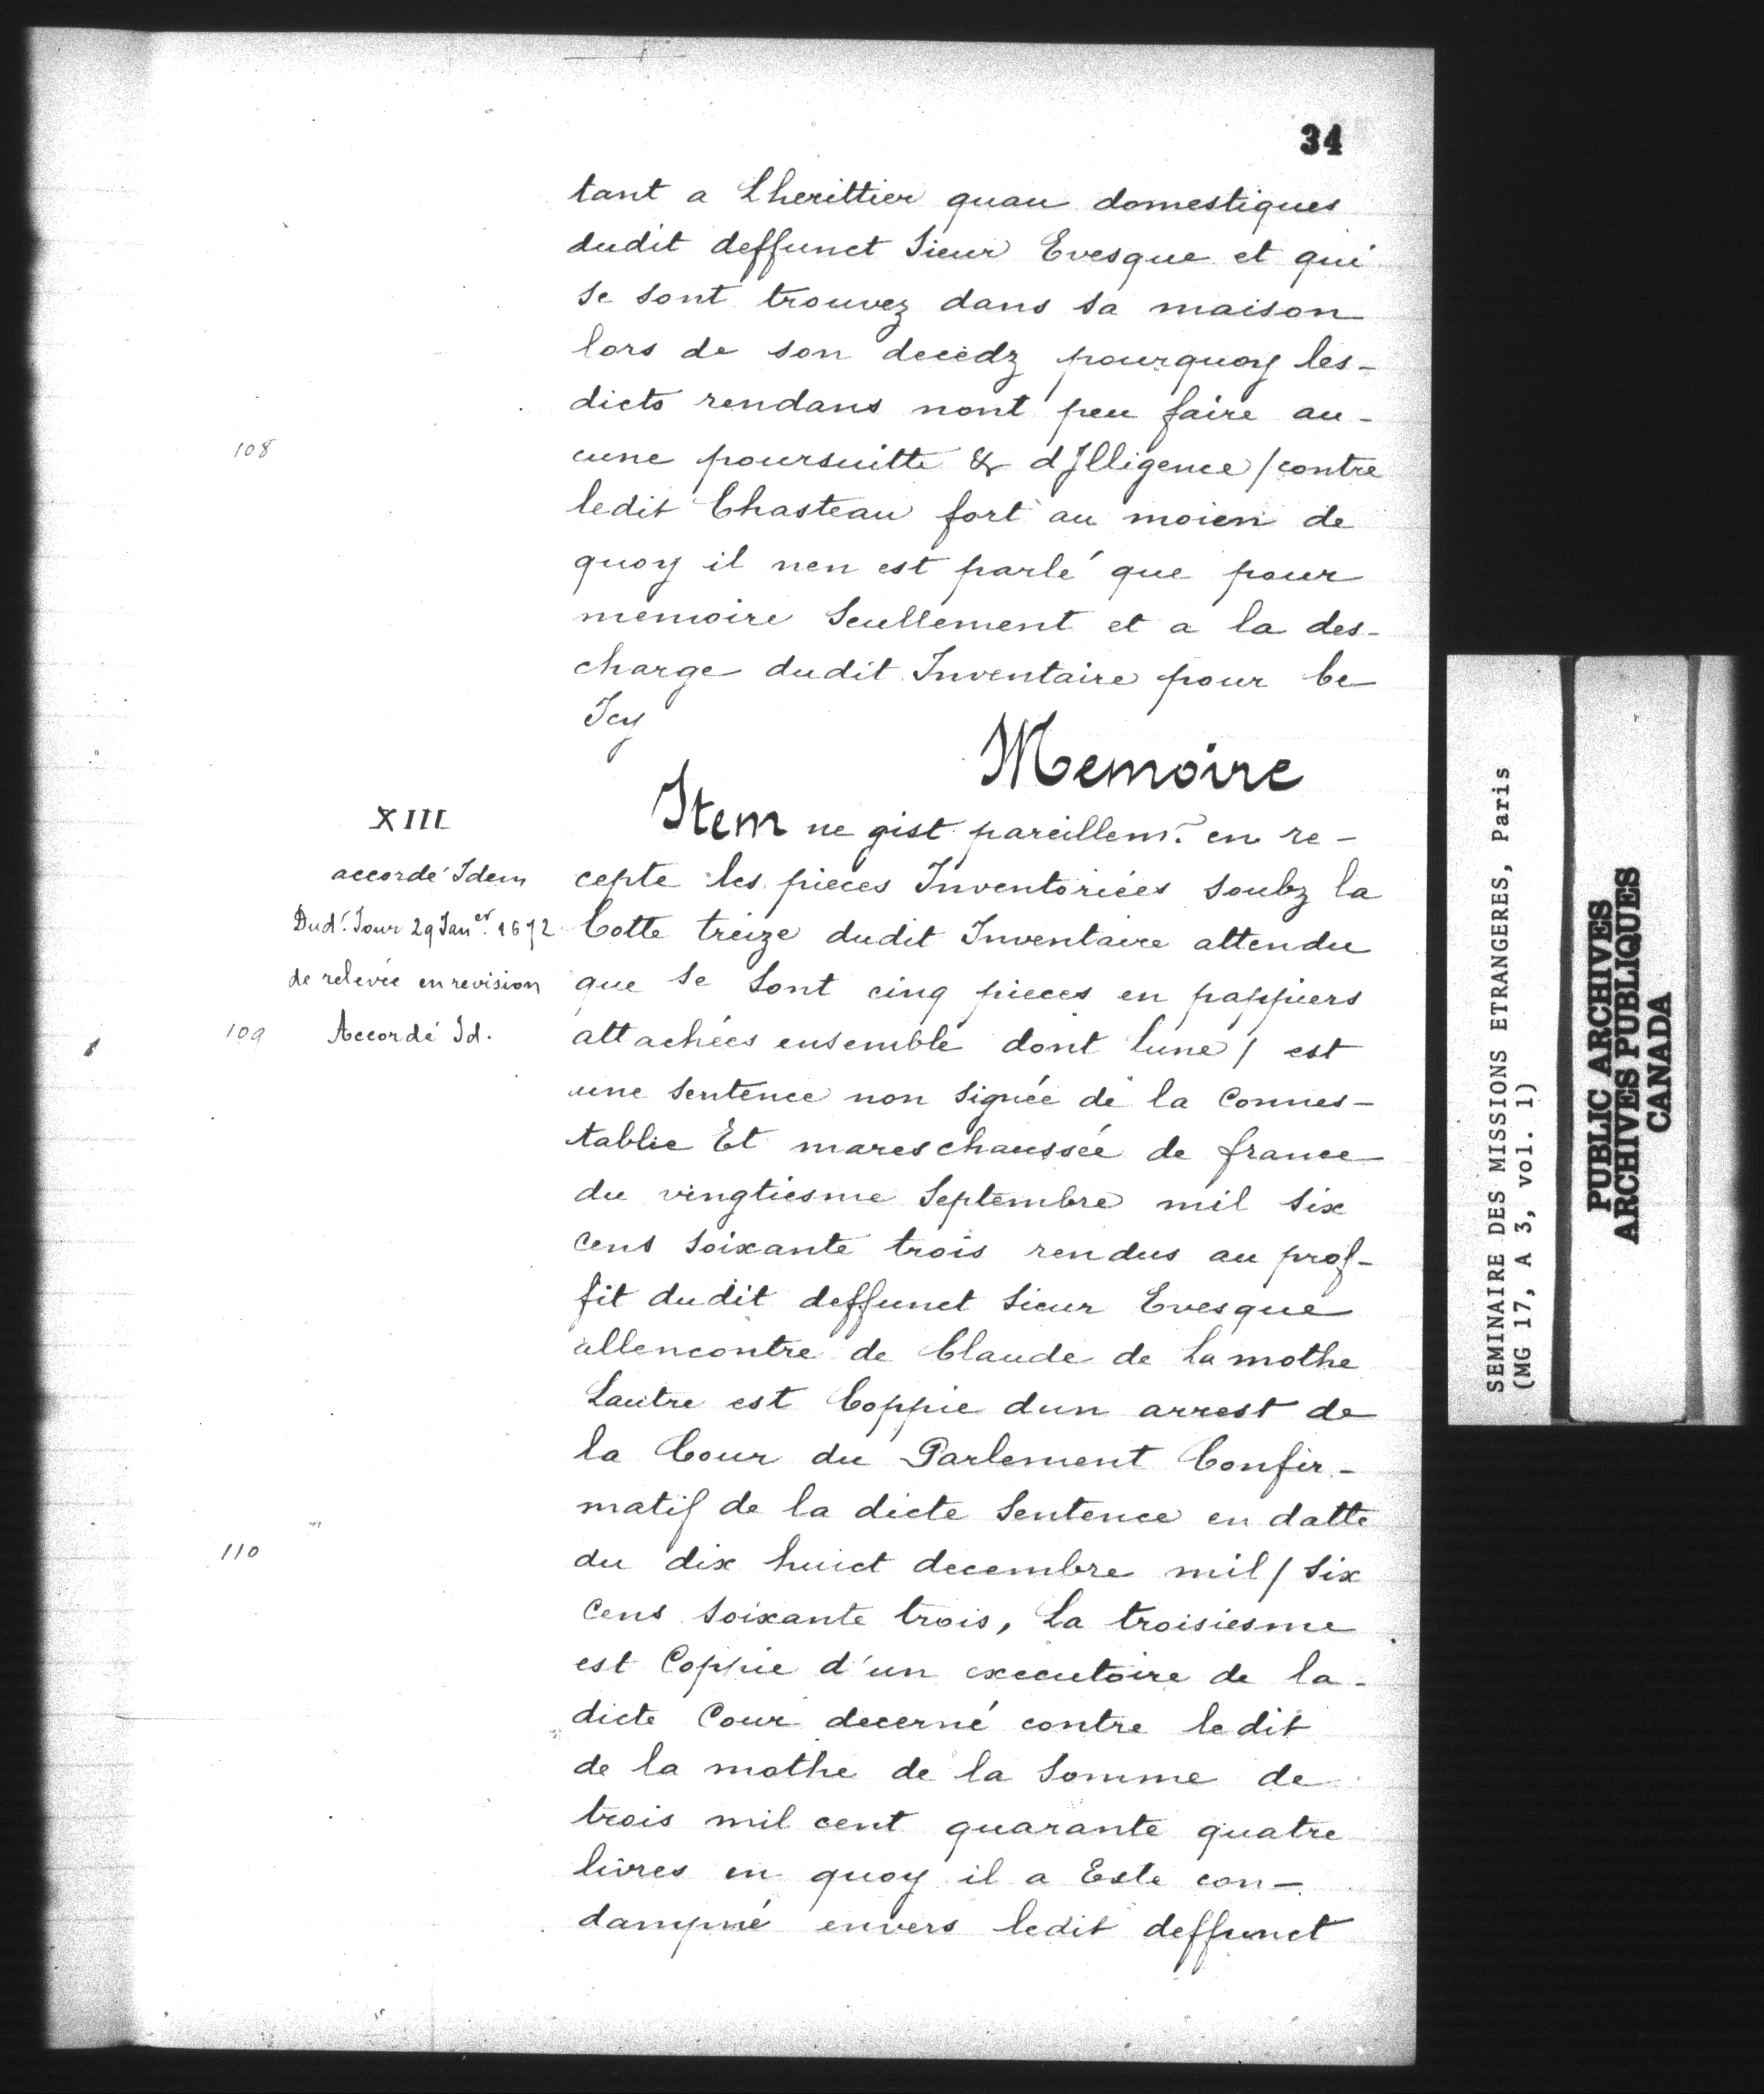 34
tant a Lherittier quau domestiques
dudit deffunct Sieur Evesque et qui
se sont trouvez dans sa maison
lors de son decedz pourquoy les-
dicts rendans nont peu faire au-
108
cune poursuitte & dJlligence / contre
ledit Chasteau fort au moien de
quoy il nen est parlé que pour
memoire Seullement et a la des-
charge dudit Inventaire pour Ce
Icy
Memoire
XIII
Item ne gist pareillemt. en re-
accordé Idem
cepte les pieces Inventoriées soubz la
Dudt. Jour 29 Janer. 1672
Cotte treize dudit Inventaire attendu
de relevée en revision
que se sont cinq pieces en pappiers
109
Accordé Id.
attachées ensemble dont lune / est
une sentence non signée de la Connes-
tablie Et mareschaussée de france
du vingtiesme Septembre mil six
Cens soixante trois rendus au prof-
fit dudit deffunct Sieur Evesque
allencontre de Claude de La mothe
Lautre est Coppie dun arrest de
la Cour du Parlement Confir-
matif de la dicte Sentence en datte
110
du dix huict decembre mil / six
Cens soixante trois, La troisiesme
est Coppie d'un executoire de la-
dicte Cour decerné contre ledit
de la mothe de la Somme de
trois mil cent quarante quatre
livres en quoy il a Este con-
dampné envers ledit deffunct
SEMINAIRE DES MISSIONS ETRANGERES, Paris
(MG 17, A 3, vol. 1)
PUBLIC ARCHIVES
ARCHIVES PUBLIQUES
CANADA